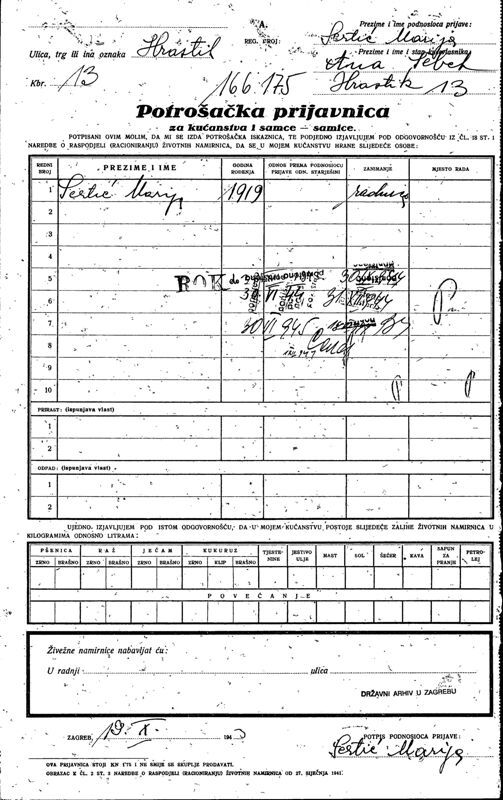 A.
REG. BROJ:
Prezime i ime podnosioca prijave:
Sertić Marija
Ulica, trg ili ina oznaka Hrastik
Prezime i ime stanovlasnika
Ana
Kbr. 13
166.175
Hrastik 13
Potrošačka prijavnica
za kućanstva i samce — samice.
POTPISANI OVIM MOLIM, DA MI SE IZDA POTROŠAČKA ISKAZNICA, TE PODJEDNO IZJAVLJUJEM POD ODGOVORNOŠĆU IZ ČL. 18 ST. 1
NAREDBE O RASPODJELI (RACIONIRANJU) ŽIVOTNIH NAMIRNICA, DA SE U MOJEM KUĆANSTVU HRANE SLIJEDEĆE OSOBE:
REDNI BROJ PREZIME I IME GODINA RODENJA ODNOS PREMA PODNOSIOCU PRIJAVE ODN. STARJEŠINI ZANIMANJE MJESTO RADA
1 Sertić Marija 1919
2
3
4
5 ROK do
6 30 VI 44 31 XII 44
7 30 VI 945
8
9
10
PRIRAST: (ispunjava vlast)
1
2
OTPAD: (ispunjava vlast)
1
2
UJEDNO IZJAVLJUJEM POD ISTOM ODGOVORNOŠĆU, DA U MOJEM KUĆANSTVU POSTOJE SLIJEDEĆE ZALIHE ŽIVOTNIH NAMIRNICA U
KILOGRAMIMA ODNOSNO LITRAMA:
PŠENICA RAŽ JEČAM KUKURUZ TJESTENINE JESTIVO ULJE MAST SOL ŠEĆER KAVA SAPUN ZA PRANJE PETROLEJ
ZRNO BRAŠNO ZRNO BRAŠNO ZRNO BRAŠNO ZRNO KLIP BRAŠNO
POVEĆANJE
Živežne namirnice nabavljat ću:
U radnji ulica
DRŽAVNI ARHIV U ZAGREBU
ZAGREB, 19. X. 194
POTPIS PODNOSIOCA PRIJAVE:
Sertić Marija
OVA PRIJAVNICA STOJI KN 1'75 I NE SMIJE SE SKUPLJE PRODAVATI.
OBRAZAC K ČL. 2 ST. 3 NAREDBE O RASPODJELI (RACIONIRANJU) ŽIVOTNIH NAMIRNICA OD 27. SIJEČNJA 1941.